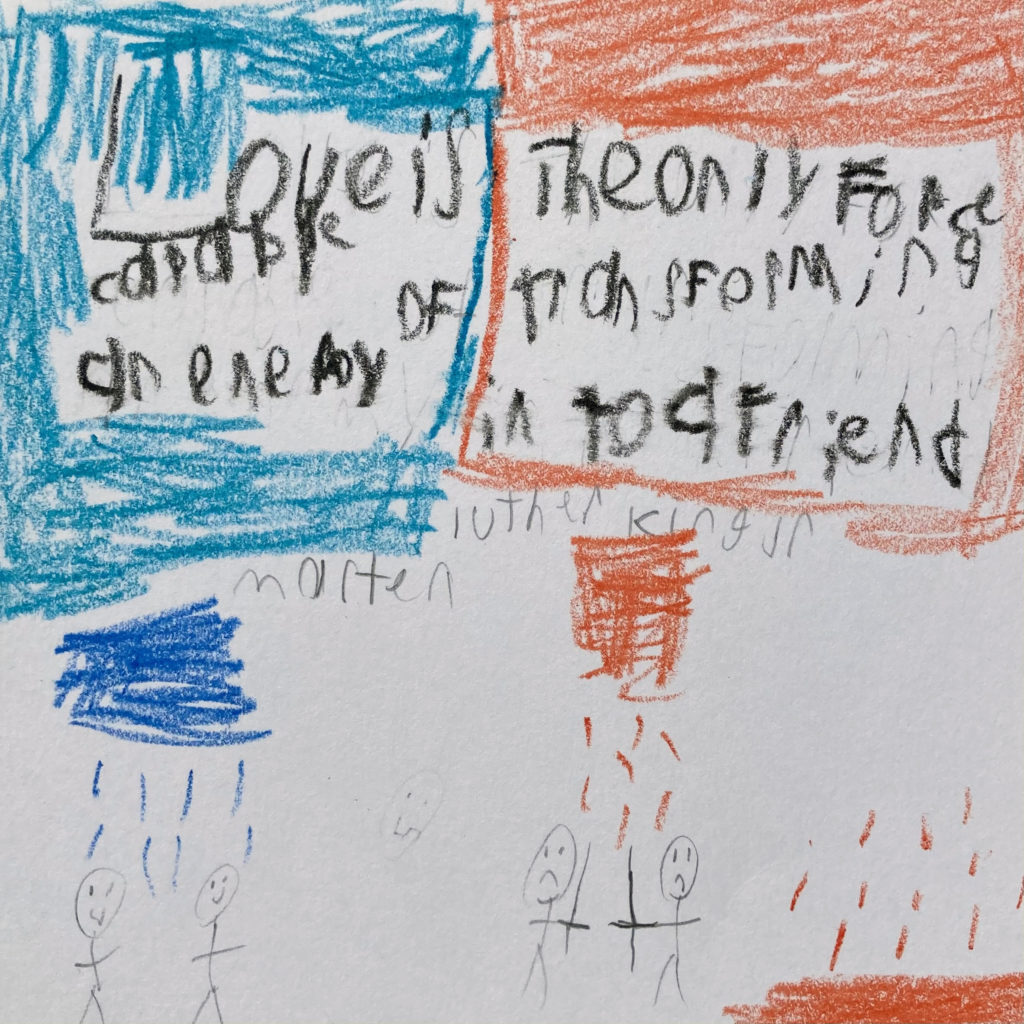 Love is The only Force
capable OF TransForming
an enemy in to a Friend
marten luther king jr